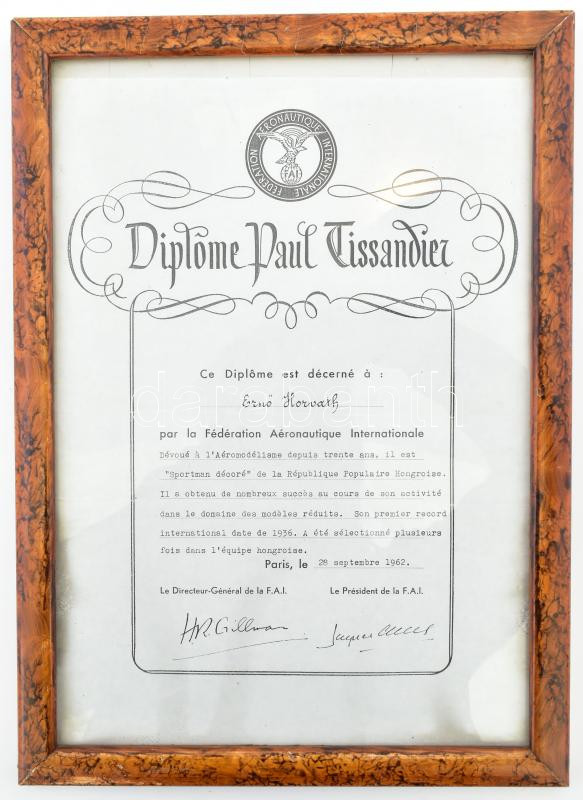 FÉDÉRATION AÉRONAUTIQUE INTERNATIONALE
FAI
Diplôme Paul Tissandier
Ce Diplôme est décerné à :
Ernö Horvath
par la Fédération Aéronautique Internationale
Dévoué à l'Aéromodélisme depuis trente ans, il est
"Sportman décoré" de la République Populaire Hongroise.
Il a obtenu de nombreux succès au cours de son activité
dans le domaine des modèles réduits. Son premier record
international date de 1936. A été sélectionné plusieurs
fois dans l'équipe hongroise.
Paris, le 28 septembre 1962.
Le Directeur-Général de la F.A.I. Le Président de la F.A.I.
H.R. Gillman
darabanth